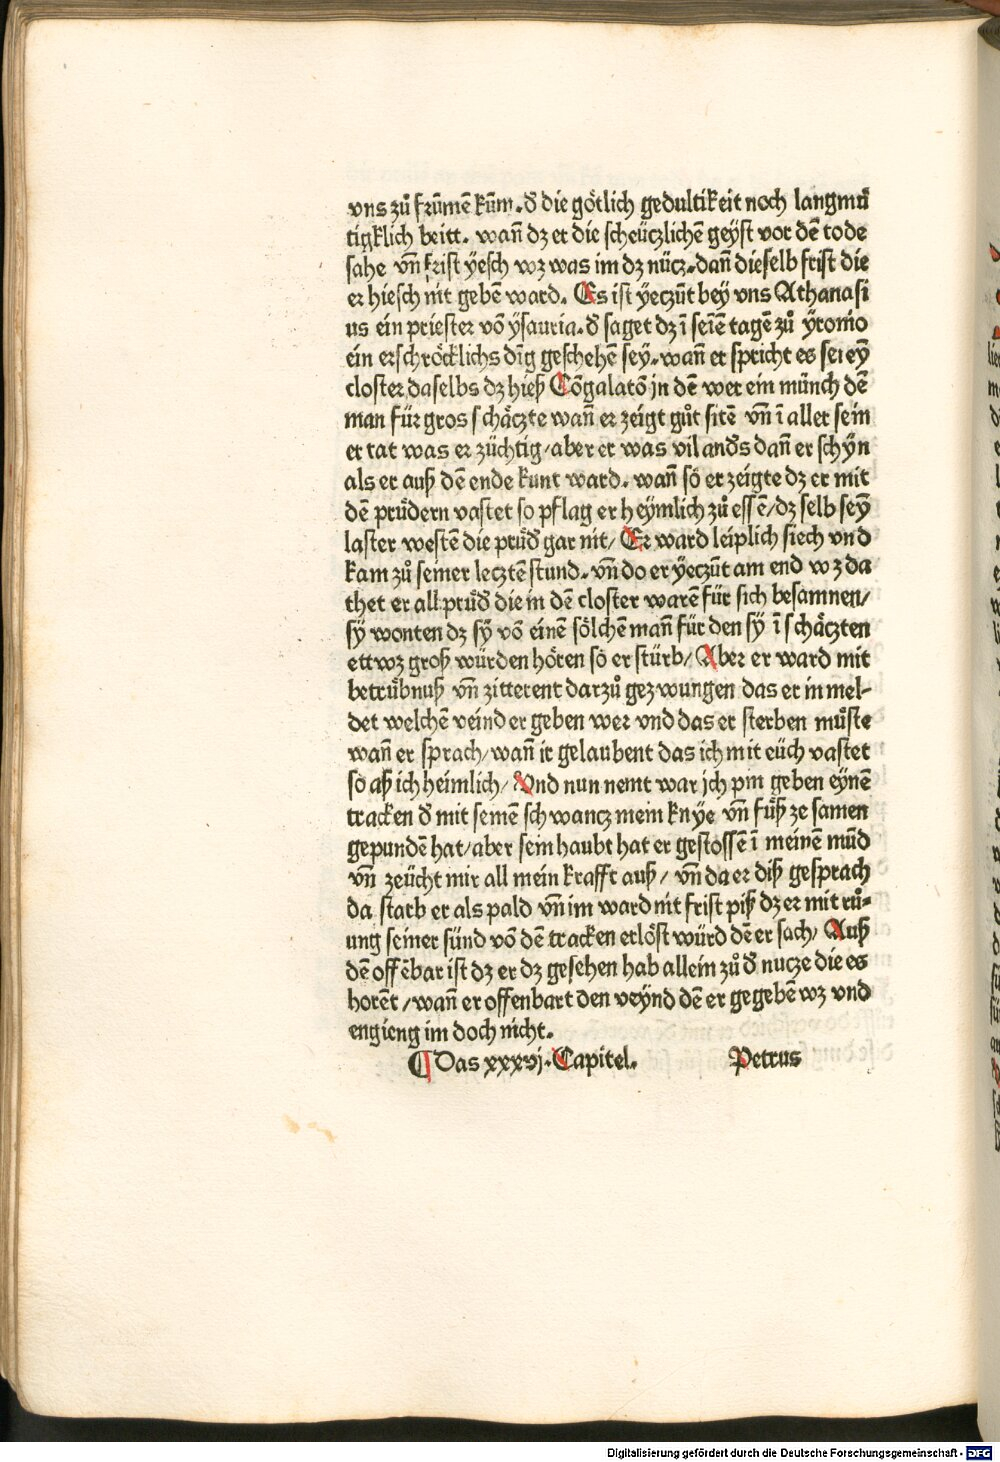 vns zů frũmẽ kũm. d̕ die götlich gedultikeit noch langmů
tigklich beitt. wañ dz er die scheüczlichẽ geyst vor dẽ tode
sahe vñ frist ÿesch wz was im dz nücz. dañ dieselb frist die
er hiesch nit gebẽ ward. Es ist ÿeczũt bey vns Athanasi
us ein priester võ ÿsauria. d̕ saget dz ĩ seiẽ tagẽ zů ÿromio
ein erschröcklichs dĩg geschehẽ sey. wañ er spricht es sei eÿ
closter daselbs dz hieß Cõgalatõ jn dẽ wer ein münch dẽ
man für gros schäczte wañ er zeigt gůt sitẽ vñ ĩ aller sein
er tat was er züchtig/ aber er was vil and̕s dañ er schÿn
als er auß dẽ ende kunt ward. wañ so er zeigte dz er mit
dẽ prüdern vastet so pflag er heÿmlich zů essẽ/ dz selb seÿ
laster westẽ die prüd̕ gar nit/ Er ward leiplich siech vnd
kam zů seiner lecztẽ stund. vñ do er ÿeczũt am end wz da
thet er all prüd̕ die in dẽ closter warẽ für sich besamnen/
sÿ wonten dz sÿ võ einẽ sölchẽ mañ für den sÿ ĩ schäczten
ettwz groß würden hören so er stürb/ Aber er ward mit
betrübnuß vñ zitterent darzů gezwungen das er in mel-
det welchẽ veind er geben wer vnd das er sterben müste
wañ er sprach/ wañ ir gelaubent das ich mit eüch vastet
so aß ich heimlich/ Vnd nun nemt war jch pin geben eÿnẽ
tracken d̕ mit seinẽ schwancz mein knÿe vñ füß ze samen
gepundẽ hat/ aber sein haubt hat er gestossẽ ĩ meinẽ mũd
vñ zeücht mir all mein krafft auß/ vñ da er diß gesprach
da starb er als pald vñ im ward nit frist piß dz er mit rů-
ung seiner sünd võ dẽ tracken erlöst würd dẽ er sach/ Auß
dẽ offẽbar ist dz er dz gesehen hab allein zů d̕ nucze die es
horẽt/ wañ er offenbart den veÿnd dẽ er gegebẽ wz vnd
engieng im doch nicht.
¶ Das xxxvj. Capitel. Petrus
Digitalisierung gefördert durch die Deutsche Forschungsgemeinschaft - DFG